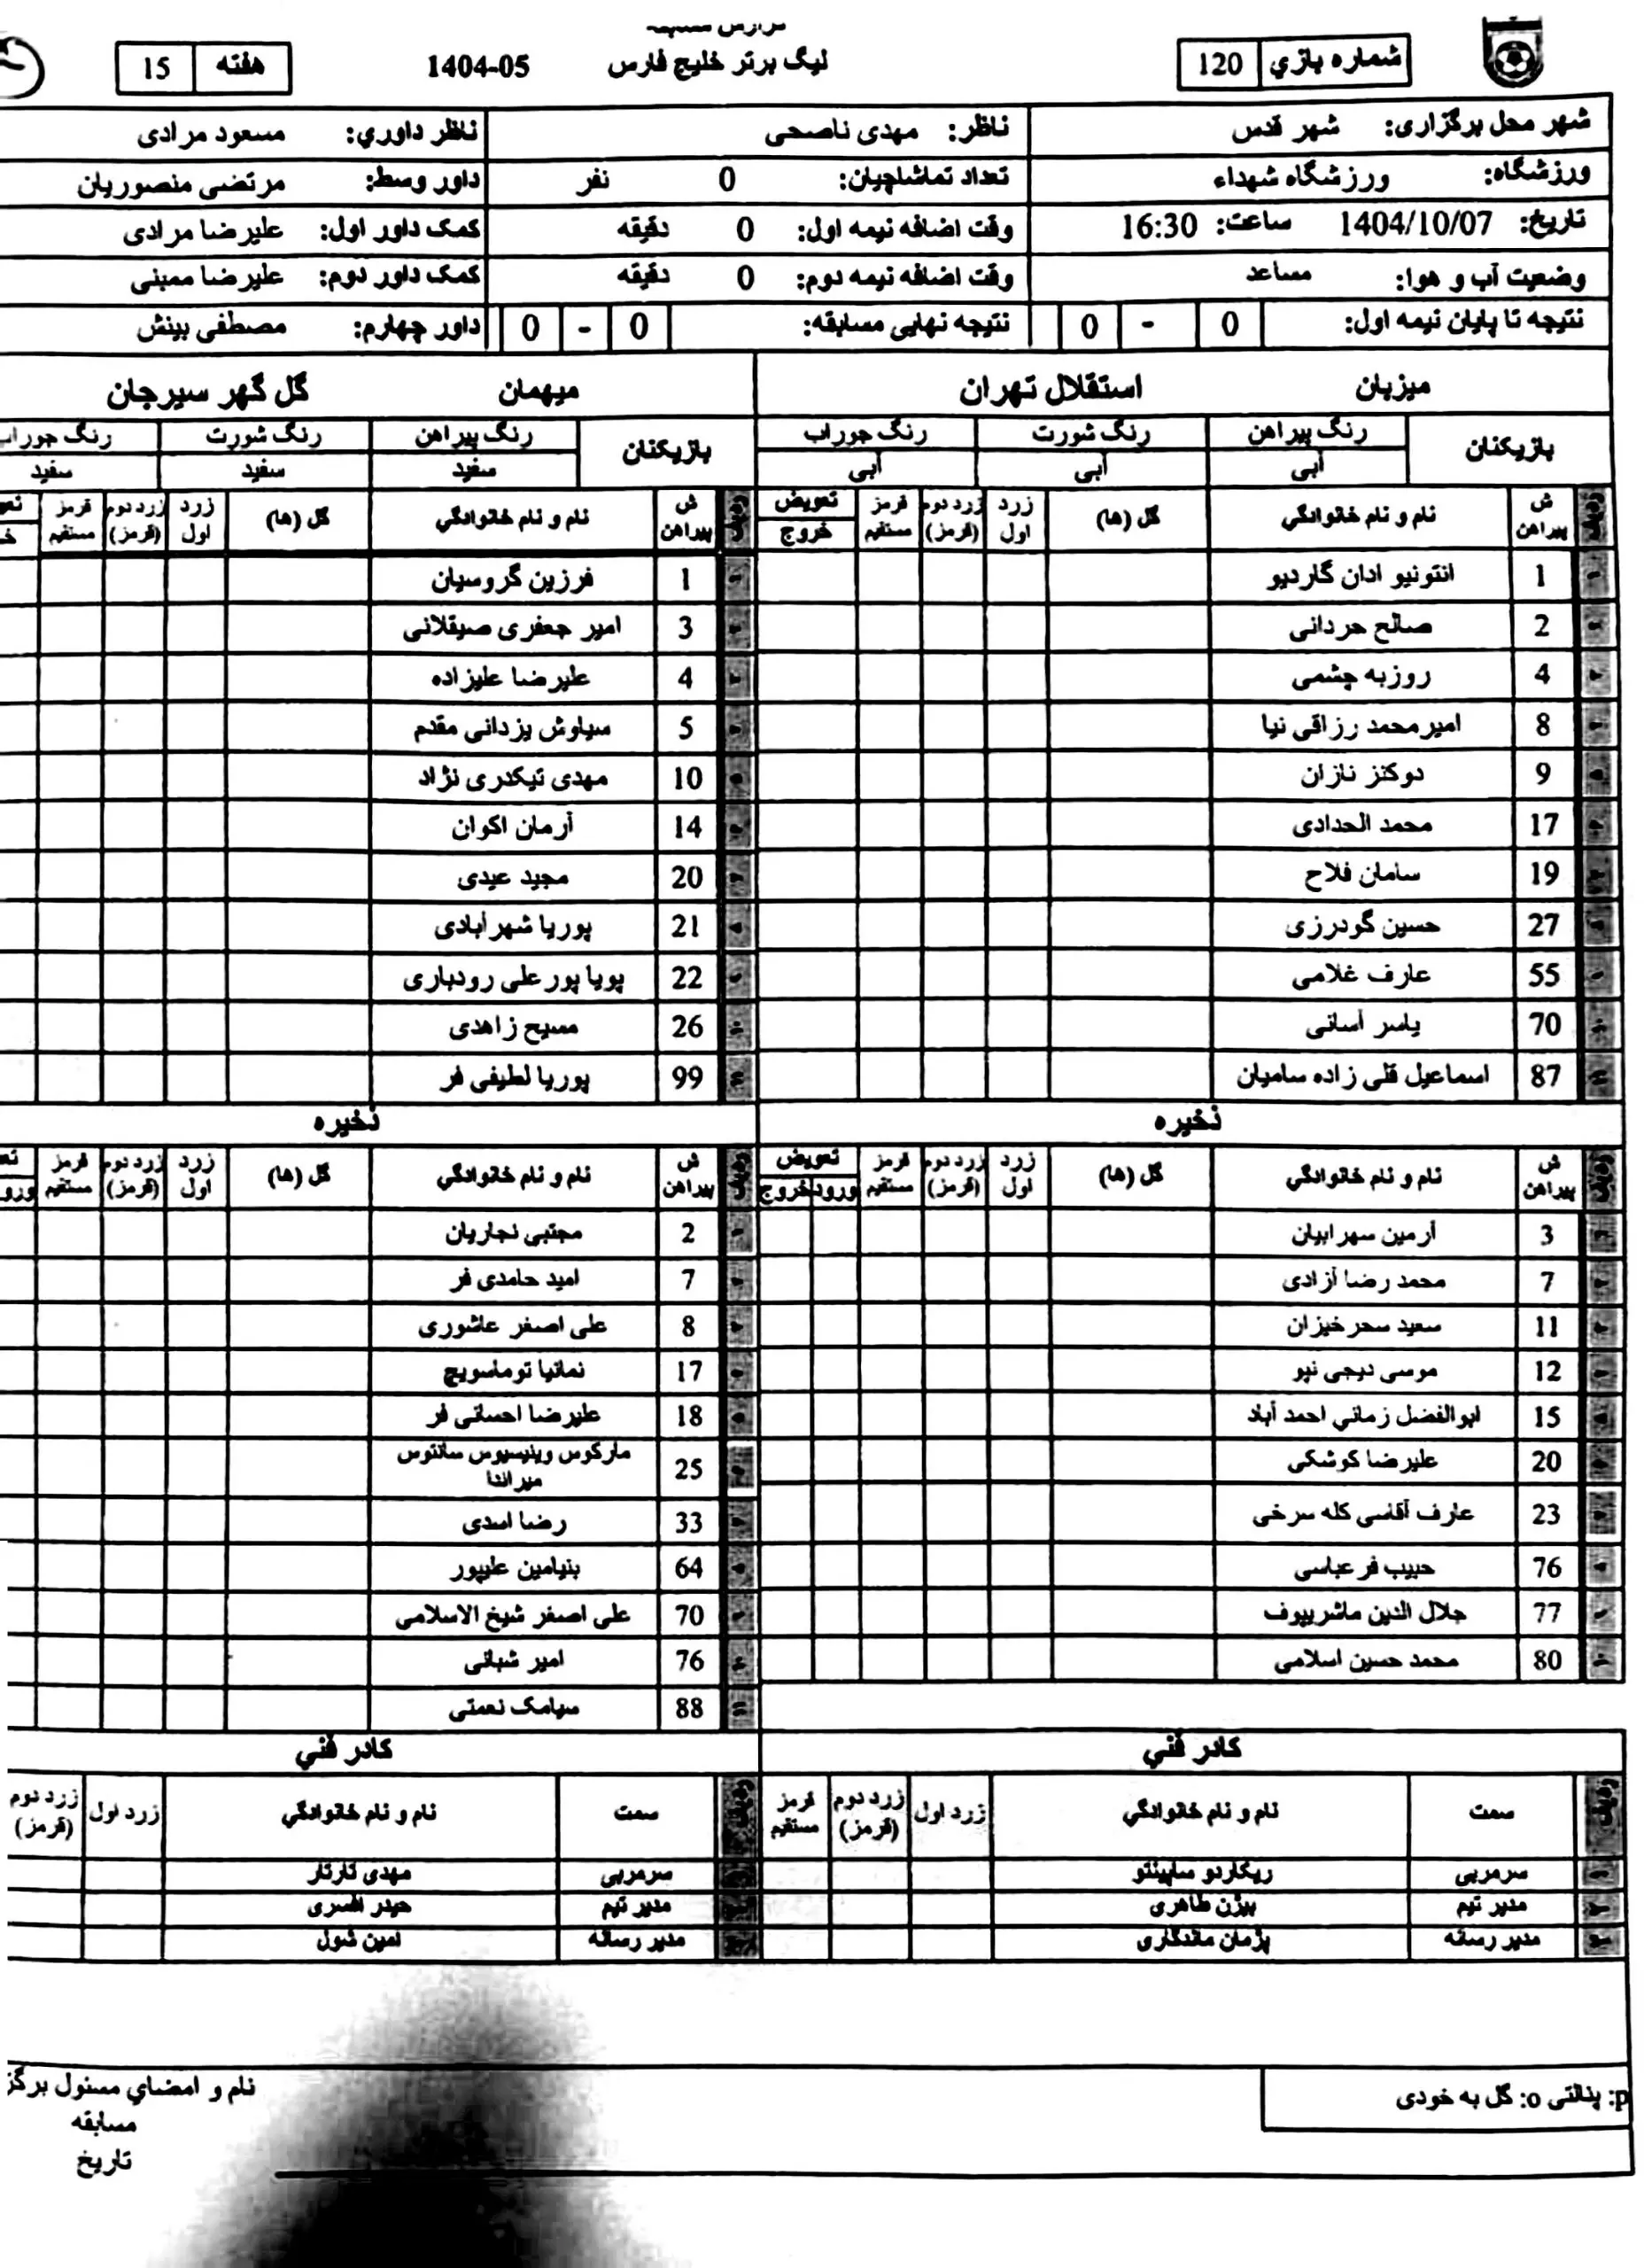 گزارش مسابقه
شماره بازي 120
ليگ برتر خليج فارس 1404-05
هفته 15
شهر محل برگزاری: شهر قدس
ناظر: مهدی ناصحی
ناظر داوري: مسعود مرادی
ورزشگاه: ورزشگاه شهداء
تعداد تماشاچيان: 0 نفر
داور وسط: مرتضی منصوریان
تاريخ: 1404/10/07 ساعت: 16:30
وقت اضافه نيمه اول: 0 دقيقه
کمک داور اول: علیرضا مرادی
وضعيت آب و هوا: مساعد
وقت اضافه نيمه دوم: 0 دقيقه
کمک داور دوم: علیرضا ممبنی
نتيجه تا پايان نيمه اول: 0 - 0
نتيجه نهايی مسابقه: 0 - 0
داور چهارم: مصطفی بینش
ميزبان استقلال تهران
بازيکنان رنگ پيراهن رنگ شورت رنگ جوراب
آبی آبی آبی
رديف ش پيراهن نام و نام خانوادگي گل (ها) زرد اول زرد دوم (قرمز) قرمز مستقيم تعويض خروج
1 انتونیو ادان گاردیو
2 صالح حردانی
4 روزبه چشمی
8 امیرمحمد رزاقی نیا
9 دوکنز نازان
17 محمد الحدادی
19 سامان فلاح
27 حسین گودرزی
55 عارف غلامی
70 یاسر آسانی
87 اسماعیل قلی زاده سامیان
ذخيره
رديف ش پيراهن نام و نام خانوادگي گل (ها) زرد اول زرد دوم (قرمز) قرمز مستقيم تعويض ورود خروج
3 آرمین سهرابیان
7 محمد رضا آزادی
11 سعید سحرخیزان
12 موسی دیجی نپو
15 ابوالفضل زماني احمد آباد
20 علیرضا کوشکی
23 عارف آقاسی کله سرخی
76 حبیب فرعباسی
77 جلال الدین ماشریپوف
80 محمد حسین اسلامی
کادر فني
رديف سمت نام و نام خانوادگي زرد اول زرد دوم (قرمز) قرمز مستقيم
سرمربی ریکاردو ساپینتو
مدیر تیم بیژن طاهری
مدیر رسانه پژمان ماندگاری
ميهمان گل گهر سيرجان
بازيکنان رنگ پيراهن رنگ شورت رنگ جوراب
سفيد سفيد سفيد
رديف ش پيراهن نام و نام خانوادگي گل (ها) زرد اول زرد دوم (قرمز) قرمز مستقيم
1 فرزین گروسیان
3 امیر جعفری صیقلانی
4 علیرضا علیزاده
5 سیاوش یزدانی مقدم
10 مهدی تیکدری نژاد
14 آرمان اکوان
20 مجید عیدی
21 پوریا شهرآبادی
22 پویا پورعلی رودباری
26 مسیح زاهدی
99 پوریا لطیفی فر
ذخيره
رديف ش پيراهن نام و نام خانوادگي گل (ها) زرد اول زرد دوم (قرمز) قرمز مستقيم
2 مجتبی نجاریان
7 امید حامدی فر
8 علی اصغر عاشوری
17 نمانیا توماسویچ
18 علیرضا احسانی فر
25 مارکوس وینیسیوس سانتوس میراندا
33 رضا اسدی
64 بنیامین علیپور
70 علی اصغر شیخ الاسلامی
76 امیر شبانی
88 سیامک نعمتی
کادر فني
رديف سمت نام و نام خانوادگي زرد اول زرد دوم (قرمز)
سرمربی مهدی تارتار
مدیر تیم حیدر افسری
مدیر رسانه امین شول
p: پنالتی o: گل به خودی
نام و امضاي مسئول
مسابقه
تاريخ